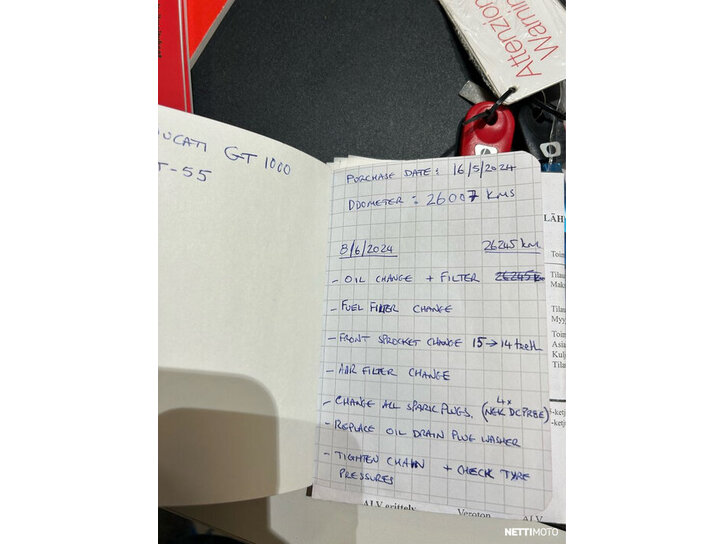 Attenzione
Warning
DUCATI GT 1000
T-55
PURCHASE DATE: 16/5/2024
ODOMETER: 26007 KMS
8/6/2024 26245 KM
- OIL CHANGE + FILTER 26245 K
- FUEL FILTER CHANGE
- FRONT SPROCKET CHANGE 15→14 teeth
- AIR FILTER CHANGE
4x
- CHANGE ALL SPARK PLUGS. (NGK DCPR8E)
- REPLACE OIL DRAIN PLUG WASHER
- TIGHTEN CHAIN + CHECK TYRE
PRESSURES
LÄH
Toim
Tilau
Maks
Tilau
Myyj
Toim
Asia
Kulj
Tila
-ketj
-ketj
ALV erittely Veroton ALV
NETTIMOTO